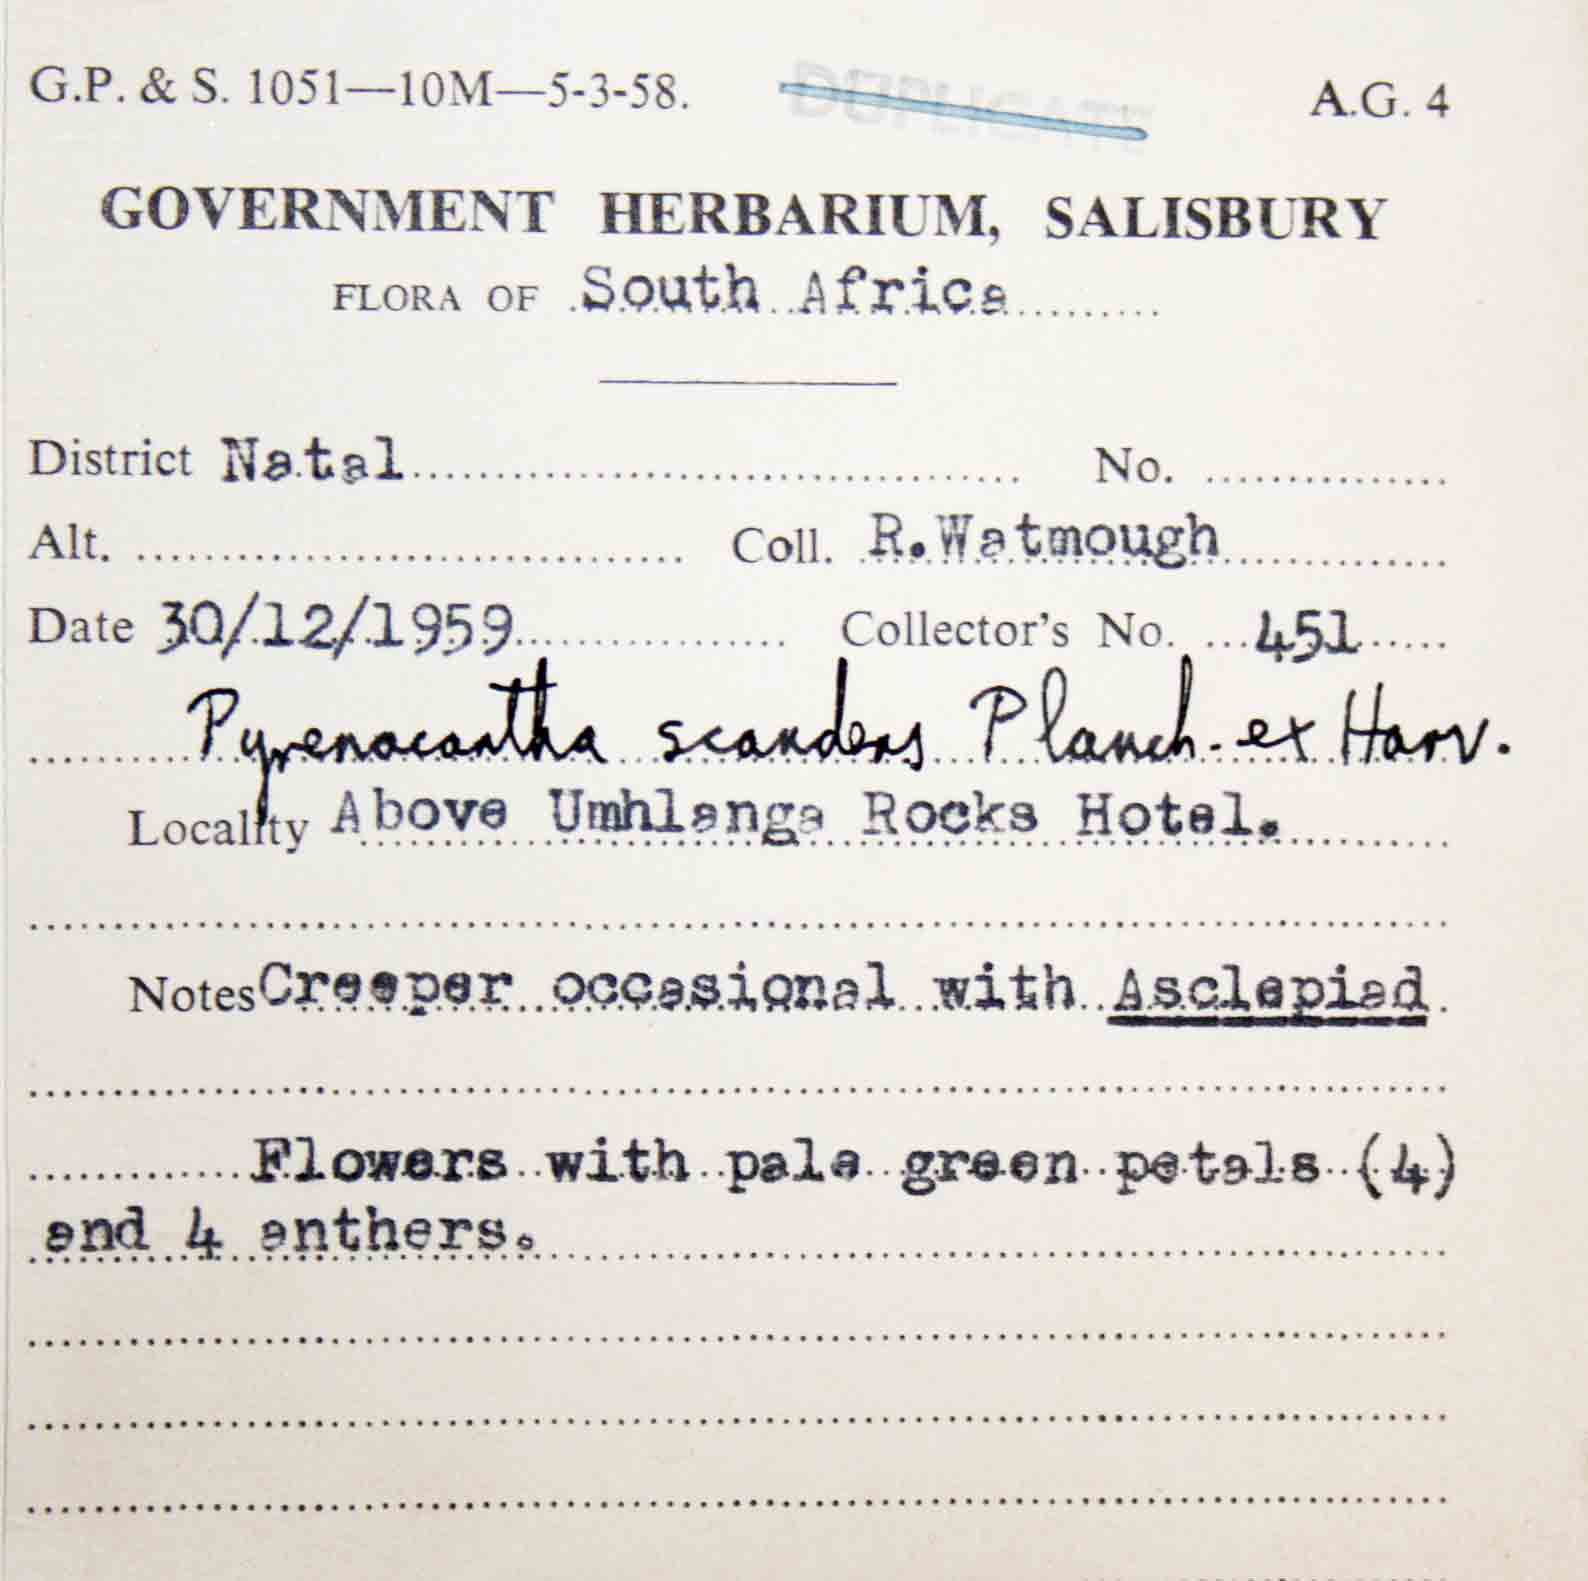 G.P. & S. 1051—10M—5-3-58. DUPLICATE A.G. 4
GOVERNMENT HERBARIUM, SALISBURY
FLORA OF South Africa
District Natal No.
Alt. Coll. R.Watmough
Date 30/12/1959 Collector's No. 451
Pyrenacantha scandens Planch. ex Harv.
Locality Above Umhlanga Rocks Hotel.
Notes Creeper occasional with Asclepiad
Flowers with pale green petals (4)
and 4 anthers.